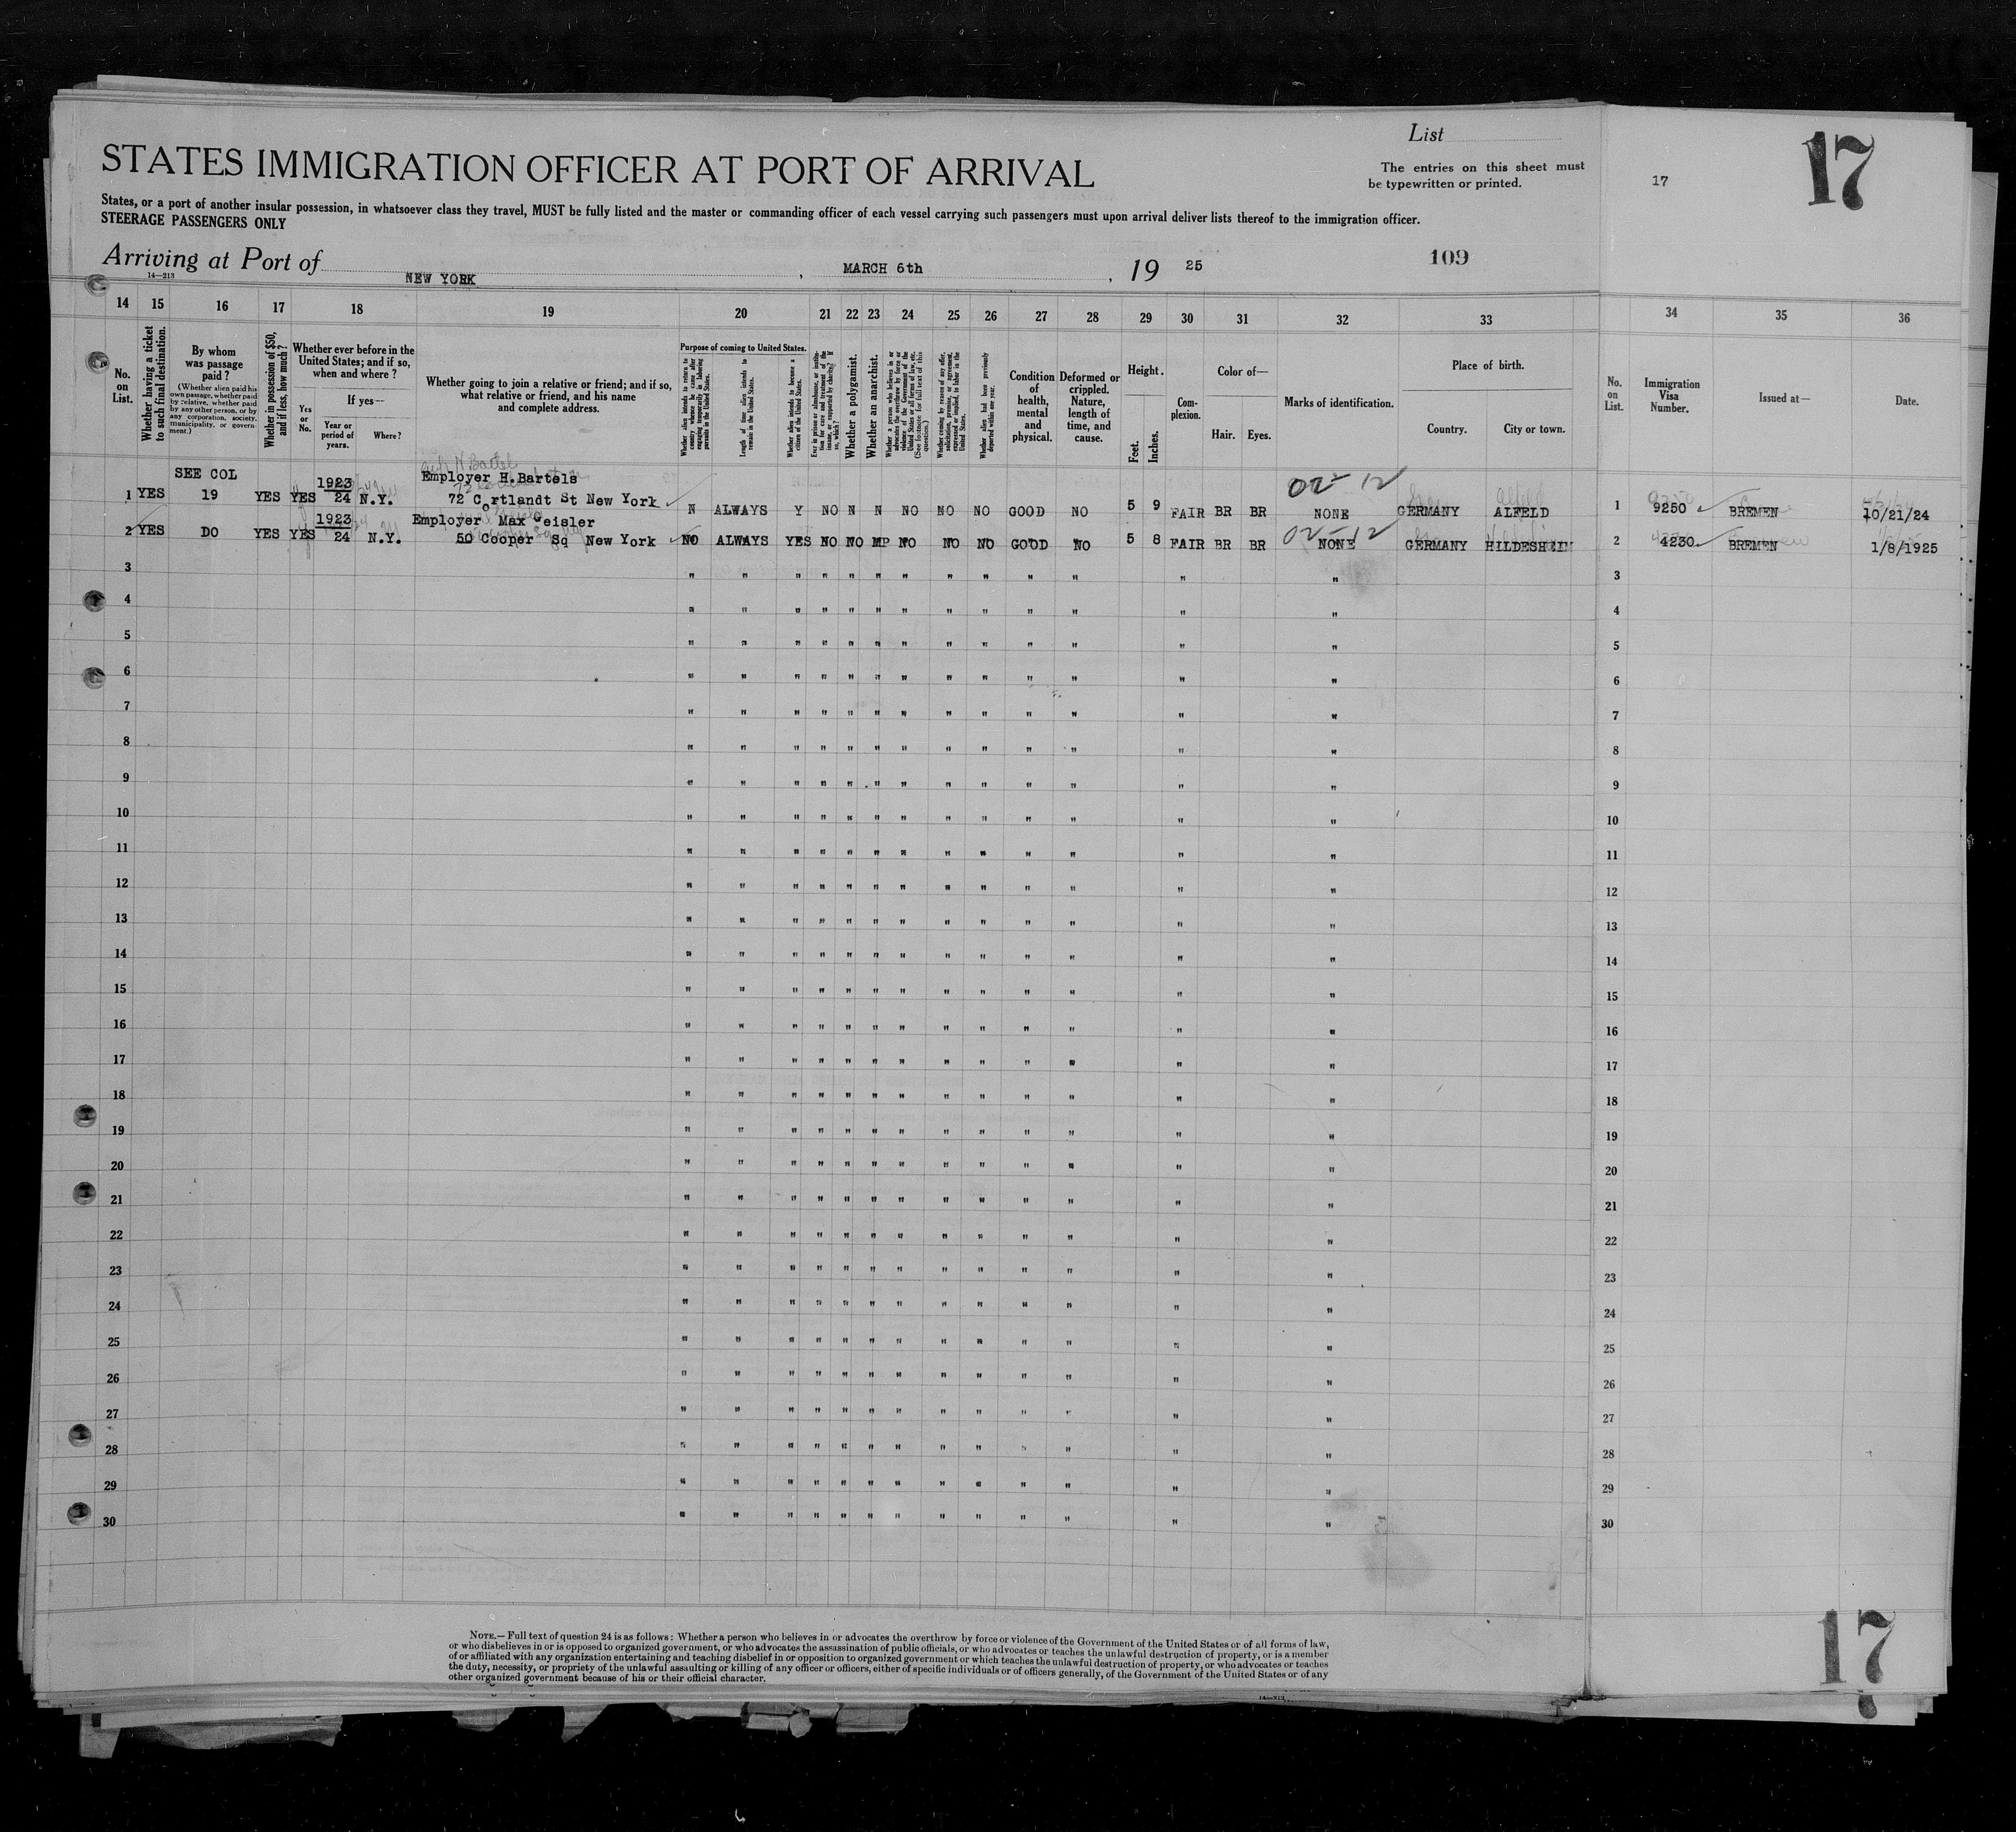 List
17
17
The entries on this sheet must
be typewritten or printed.
STATES IMMIGRATION OFFICER AT PORT OF ARRIVAL
States, or a port of another insular possession, in whatsoever class they travel, MUST be fully listed and the master or commanding officer of each vessel carrying such passengers must upon arrival deliver lists thereof to the immigration officer.
STEERAGE PASSENGERS ONLY
Arriving at Port of NEW YORK, MARCH 6th, 19 25
109
14—213
14 15 16 17 18 19 20 21 22 23 24 25 26 27 28 29 30 31 32 33 34 35 36
No. on List.
Whether having a ticket to such final destination.
By whom was passage paid?
(Whether alien paid his own passage, whether paid by relative, whether paid by any other person, or by any corporation, society, municipality, or government.)
Whether in possession of $50, and if less, how much?
Whether ever before in the United States; and if so, when and where?
Yes or No.
If yes—
Year or period of years.
Where?
Whether going to join a relative or friend; and if so, what relative or friend, and his name and complete address.
Purpose of coming to United States.
Whether alien intends to return to country whence he came after engaging temporarily in laboring pursuits in the United States.
Length of time alien intends to remain in the United States.
Whether alien intends to become a citizen of the United States.
Whether a polygamist.
Whether an anarchist.
Whether alien had been previously deported within one year.
Condition of health, mental and physical.
Deformed or crippled. Nature, length of time, and cause.
Height.
Feet.
Inches.
Complexion.
Color of—
Hair.
Eyes.
Marks of identification.
Place of birth.
Country.
City or town.
No. on List.
Immigration Visa Number.
Issued at—
Date.
SEE COL 1923 Employer H.Bartels 02-12
1 YES 19 YES YES 24 N.Y. 72 Cortlandt St New York N ALWAYS Y NO N N NO NO NO GOOD NO 5 9 FAIR BR BR NONE GERMANY ALFELD 1 9250 BREMEN 10/21/24
1923 Employer Max Geisler 02-12
2 YES DO YES YES 24 N.Y. 50 Cooper Sq New York NO ALWAYS YES NO NO NO NO NO GOOD NO 5 8 FAIR BR BR NONE GERMANY HILDESHEIM 2 4230 BREMEN 1/8/1925
3 " " " " " " " " " " " " " 3
4 " " " " " " " " " " " " " 4
5 " " " " " " " " " " " " " 5
6 " " " " " " " " " " " " " 6
7 " " " " " " " " " " " " " 7
8 " " " " " " " " " " " " " 8
9 " " " " " " " " " " " " " 9
10 " " " " " " " " " " " " " 10
11 " " " " " " " " " " " " " 11
12 " " " " " " " " " " " " " 12
13 " " " " " " " " " " " " " 13
14 " " " " " " " " " " " " " 14
15 " " " " " " " " " " " " " 15
16 " " " " " " " " " " " " " 16
17 " " " " " " " " " " " " " 17
18 " " " " " " " " " " " " " 18
19 " " " " " " " " " " " " " 19
20 " " " " " " " " " " " " " 20
21 " " " " " " " " " " " " " 21
22 " " " " " " " " " " " " " 22
23 " " " " " " " " " " " " " 23
24 " " " " " " " " " " " " " 24
25 " " " " " " " " " " " " " 25
26 " " " " " " " " " " " " " 26
27 " " " " " " " " " " " " " 27
28 " " " " " " " " " " " " " 28
29 " " " " " " " " " " " " " 29
30 " " " " " " " " " " " " " 30
NOTE.—Full text of question 24 is as follows: Whether a person who believes in or advocates the overthrow by force or violence of the Government of the United States or of all forms of law,
or who disbelieves in or is opposed to organized government, or who advocates the assassination of public officials, or who advocates or teaches the unlawful destruction of property, or is a member
of or affiliated with any organization entertaining and teaching disbelief in or opposition to organized government or which teaches the unlawful destruction of property, or who advocates or teaches
the duty, necessity, or propriety of the unlawful assaulting or killing of any officer or officers, either of specific individuals or of officers generally, of the Government of the United States or of any
other organized government because of his or their official character.
14—213
17